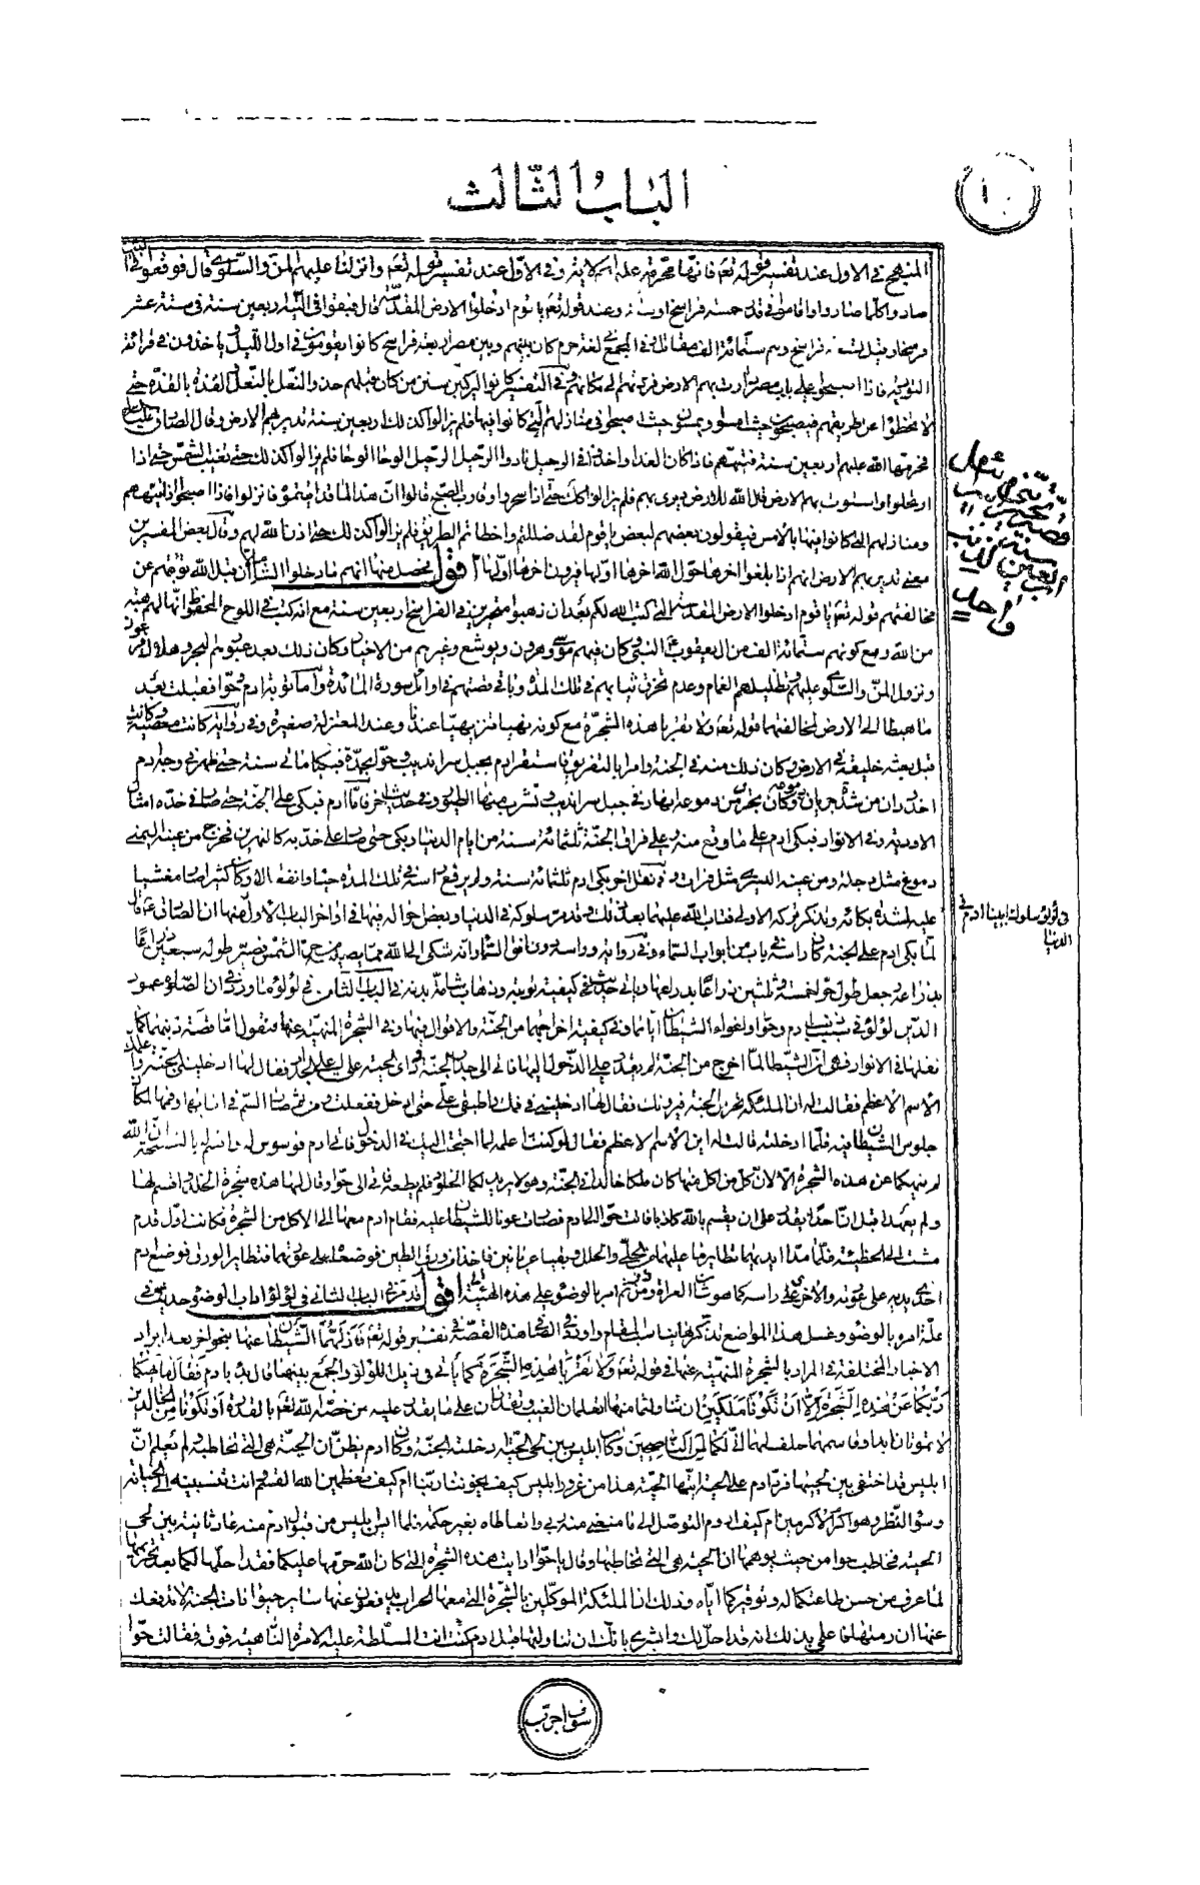 الباب الثالث
١٠
المنهج في الاول عند تفسير قوله تعم فانها محرمة عليهم وفي الاول عند تفسير قوله تعم وانزلنا عليهم المن والسلوى قال فوقعوا في التيه
صاروا كلما صاروا واقاموا في قدر خمسة فراسخ وعند قوله تعم يا قوم ادخلوا الارض المقدسة قال فبقوا في التيه اربعين سنة في ستة عشر
فرسخا وقيل تسعة فراسخ وهم ستمائة الف مقاتل وفي المجمع كان بينهم وبين مصر اربعة فراسخ كانوا يقومون في اول الليل ياخذون في قرائة
التورية فاذا اصبحوا على باب مصر دارت بهم الارض فردتهم الى مكانهم وفي التفسير كانوا الراكبين سنن من كان قبلهم حذو النعل بالنعل والقذة بالقذة حتى
لا يخطؤا عن طريقهم فيصبحون حيث امسوا ويمسون حيث اصبحوا في منازلهم التي كانوا فيها فلم يزالوا كذلك اربعين سنة تدير بهم الارض وقال الصادق عليه السلام
فحرمها الله عليهم اربعين سنة فتيههم فاذا كان العشاء واخذوا في الرحيل نادوا الرحيل الرحيل الوحا الوحا فلم يزالوا كذلك حتى تغيب الشمس حتى اذا
ارتحلوا واستوت بهم الارض قال الله للارض ديري بهم فلم يزالوا كذلك حتى اذا اسحروا وقارب الصبح قالوا ان هذا الماء قد اتيتموه فانزلوا فاذا اصبحوا اذا تيههم
ومنازلهم التي كانوا فيها بالامس فيقولون بعضهم لبعض يا قوم لقد ضللتم واخطاتم الطريق فلم يزالوا كذلك حتى اذن الله لهم وقال بعض المفسرين
معنى تدير بهم الارض انهم اذا بلغوا اخرها حول الله اخرها اولها فيرون اخرها اولها اقول يحصل منها انهم ما دخلوا الشام الا ان قبل الله توبتهم عن
مخالفتهم قوله تعم يا قوم ادخلوا الارض المقدسة التي كتب الله لكم بعد ان ذهبوا متحيرين في الفراسخ اربعين سنة مع انه كتب في اللوح المحفوظ انها لهم هبة
من الله ومع كونهم ستمائة الف من ال يعقوب النبي وكان فيهم موسى وهرون ويوشع وغيرهم من الاخيار وكان ذلك بعد عبورهم البحر وهلاك فرعون
ونزول المن والسلوى عليهم وتظليلهم الغمام وعدم تخرق ثيابهم في تلك المدة وباقي قصتهم في اوائل سورة المائدة واما توبة ادم وحوا فقبلت بعد
ما هبطا الى الارض لمخالفتهما قوله تعم ولا تقربا هذه الشجرة مع كونه نهيا تنزيهيا عندنا وعند المعتزلة صغيرة وفي رواية كانت معصيته
قبل بعثه خليفة في الارض وكان ذلك منه في الجنة وامرا بالتفريق فاستقر ادم بجبل سرانديب وحوا بجدة فبكيا مائتي سنة حتى ظهر في وجه ادم
اخدودان من شدة جريان دموعه وكان يجري من دموعه انهار في جبل سرانديب تشرب منها الطيور وفي حديث اخر فاما ادم فبكى على الجنة حتى صار في خده امثال
الاودية وفي الانوار فبكى ادم على ما وقع منه وعلى فراق الجنة ثلثمائة سنة من ايام الدنيا وبكى حتى صار على خديه كالنهرين يخرج من عينه اليمنى
دموع مثل دجلة ومن عينه اليسرى مثل فرات وفي نقل اخر بكى ادم ثلثمائة سنة ولم يرفع راسه في تلك المدة حياء وانفعالا وكان كثيرا ما مغشيا
عليه لشدة بكائه وتذكر تركه الاولى فتاب الله عليهما بعد ذلك وقد مر سلوكه في الدنيا وبعض احواله فيها في اواخر الباب الاول منها ان الصادق ع قال
لما بكى ادم على الجنة كان راسه في باب من ابواب السماء وفي رواية وراسه دون افق السماء وانه شكى الى الله مما يصيبه من حر الشمس فصير طوله سبعين ذراعا
بذراعه وجعل طول حوا خمسة وثلثين ذراعا بذراعها وياتي حديث في كيفية توبته وذهاب شامة بدنه في الباب الثامن في لؤلؤ ما ورد في ان الصلوة عمود
الدين لؤلؤ في تشبيب ادم وحوا واغواء الشيطان اياهما وفي كيفية اخراجهما من الجنة والاقوال فيها وفي الشجرة المنهية عنها فنقول اما قصة ذنبهما كما
نقلها في الانوار فهي ان الشيطان لما اخرج من الجنة لم يقدر على الدخول اليها فاتى الى جدار الجنة وراى الحية على اعلى الجدار فقال لها ادخليني الجنة واعلمك
الاسم الاعظم فقالت له ان الملئكة تحرس الجنة فيرونك فقال لها ادخليني في فمك واطبقي علي حتى ادخل ففعلت ومن ثم صار السم في انيابها وفمها لمكان
جلوس الشيطان فيه فلما ادخلته قالت له اين الاسم الاعظم فقال لو كنت اعلمه لما احتجت اليك في الدخول فاتى ادم فوسوس له وابتدء بالنسبة ان الله
لم ينهيكما عن هذه الشجرة الا لان كل من اكل منها كان ملكا خالدا في الجنة وهو لا يريد لكما الخلود فلم يطعه فاتى الى حوا وقال لها هذه شجرة الخلد واقسم لها
ولم يعهدا قبل ان احدا يقدم على ان يقسم بالله كاذبا فاتت حوا الى ادم فصارت عونا للشيطان عليه فقام ادم معها الى الاكل من الشجرة فكانت اول قدم
مشت الى الخطيئة فلما مدا ايديهما تطاير ما عليهما من الحلي والحلل وبقيا عريانين فاخذا من ورق التين فوضعاه على عورتهما فتطاير الورق فوضع ادم
احدى يديه على عورته والاخرى على راسه كما هو شان العراة ومن ثم امر بالوضوء على هذه الهيئة اقول قد مر في الباب الثاني في لؤلؤ اداب الوضوء حديث في
علة امره بالوضوء وغسل هذا المواضع تذكرها يناسب المقام وورد في الصافي هذه القصة في تفسير قوله تعم فازلهما الشيطان عنها بنحو اخر بعد ايراد
الاخبار المختلفة في المراد بالشجرة المنهية عنها في قوله تعم ولا تقربا هذه الشجرة كما ياتي في ذيل اللؤلؤ والجمع بينها قال بدء يا ادم فقال ما نهيكما
ربكما عن هذه الشجرة الا ان تكونا ملكين ان تناولتما منها تعلمان الغيب وتقدران على ما يقدر عليه من خصه الله تعم بالقدرة او تكونا من الخالدين
لا تموتان ابدا وقاسمهما حلف لهما اني لكما لمن الناصحين وكان ابليس بين لحيي الحية ادخلته الجنة وكان ادم يظن ان الحية هي التي تخاطبه ولم يعلم ان
ابليس قد اختفى بين لحييها فرد ادم على الحية ايتها الحية هذا من غرور ابليس كيف يخوننا ربنا ام كيف تعظمين الله القسم به وانت تنسبينه الى الخيانة
وسوء النظر وهو اكرم الاكرمين ام كيف اروم التوصل الى ما منعني منه ربي واتعاطاه بغير حكمه فلما ايس ابليس من قبول ادم منه عاد ثانية بين لحيي
الحية فخاطب حوا من حيث يوهمها ان الحية هي التي تخاطبها وقال يا حوا ارايت هذه الشجرة التي كان الله حرمها عليكما فقد احلها لكما بعد تحريمها
لما عرف من حسن طاعتكما له وتوقيركما اياه وذلك ان الملئكة الموكلين بالشجرة التي معها الحراب يدفعون عنها ساير حيوانات الجنة لا تدفعك
عنها ان رمتها فاعلمي بذلك انه قد احل لك وابشري بانك ان تناولتها قبل ادم كنت انت المسلطة عليه الامرة الناهية فوقه فقالت حوا
قصة تحير بني اسرائيل
اربعين سنة
واحد
في لؤلؤ سلوك ابينا ادم في
الدنيا
سوف اجرب